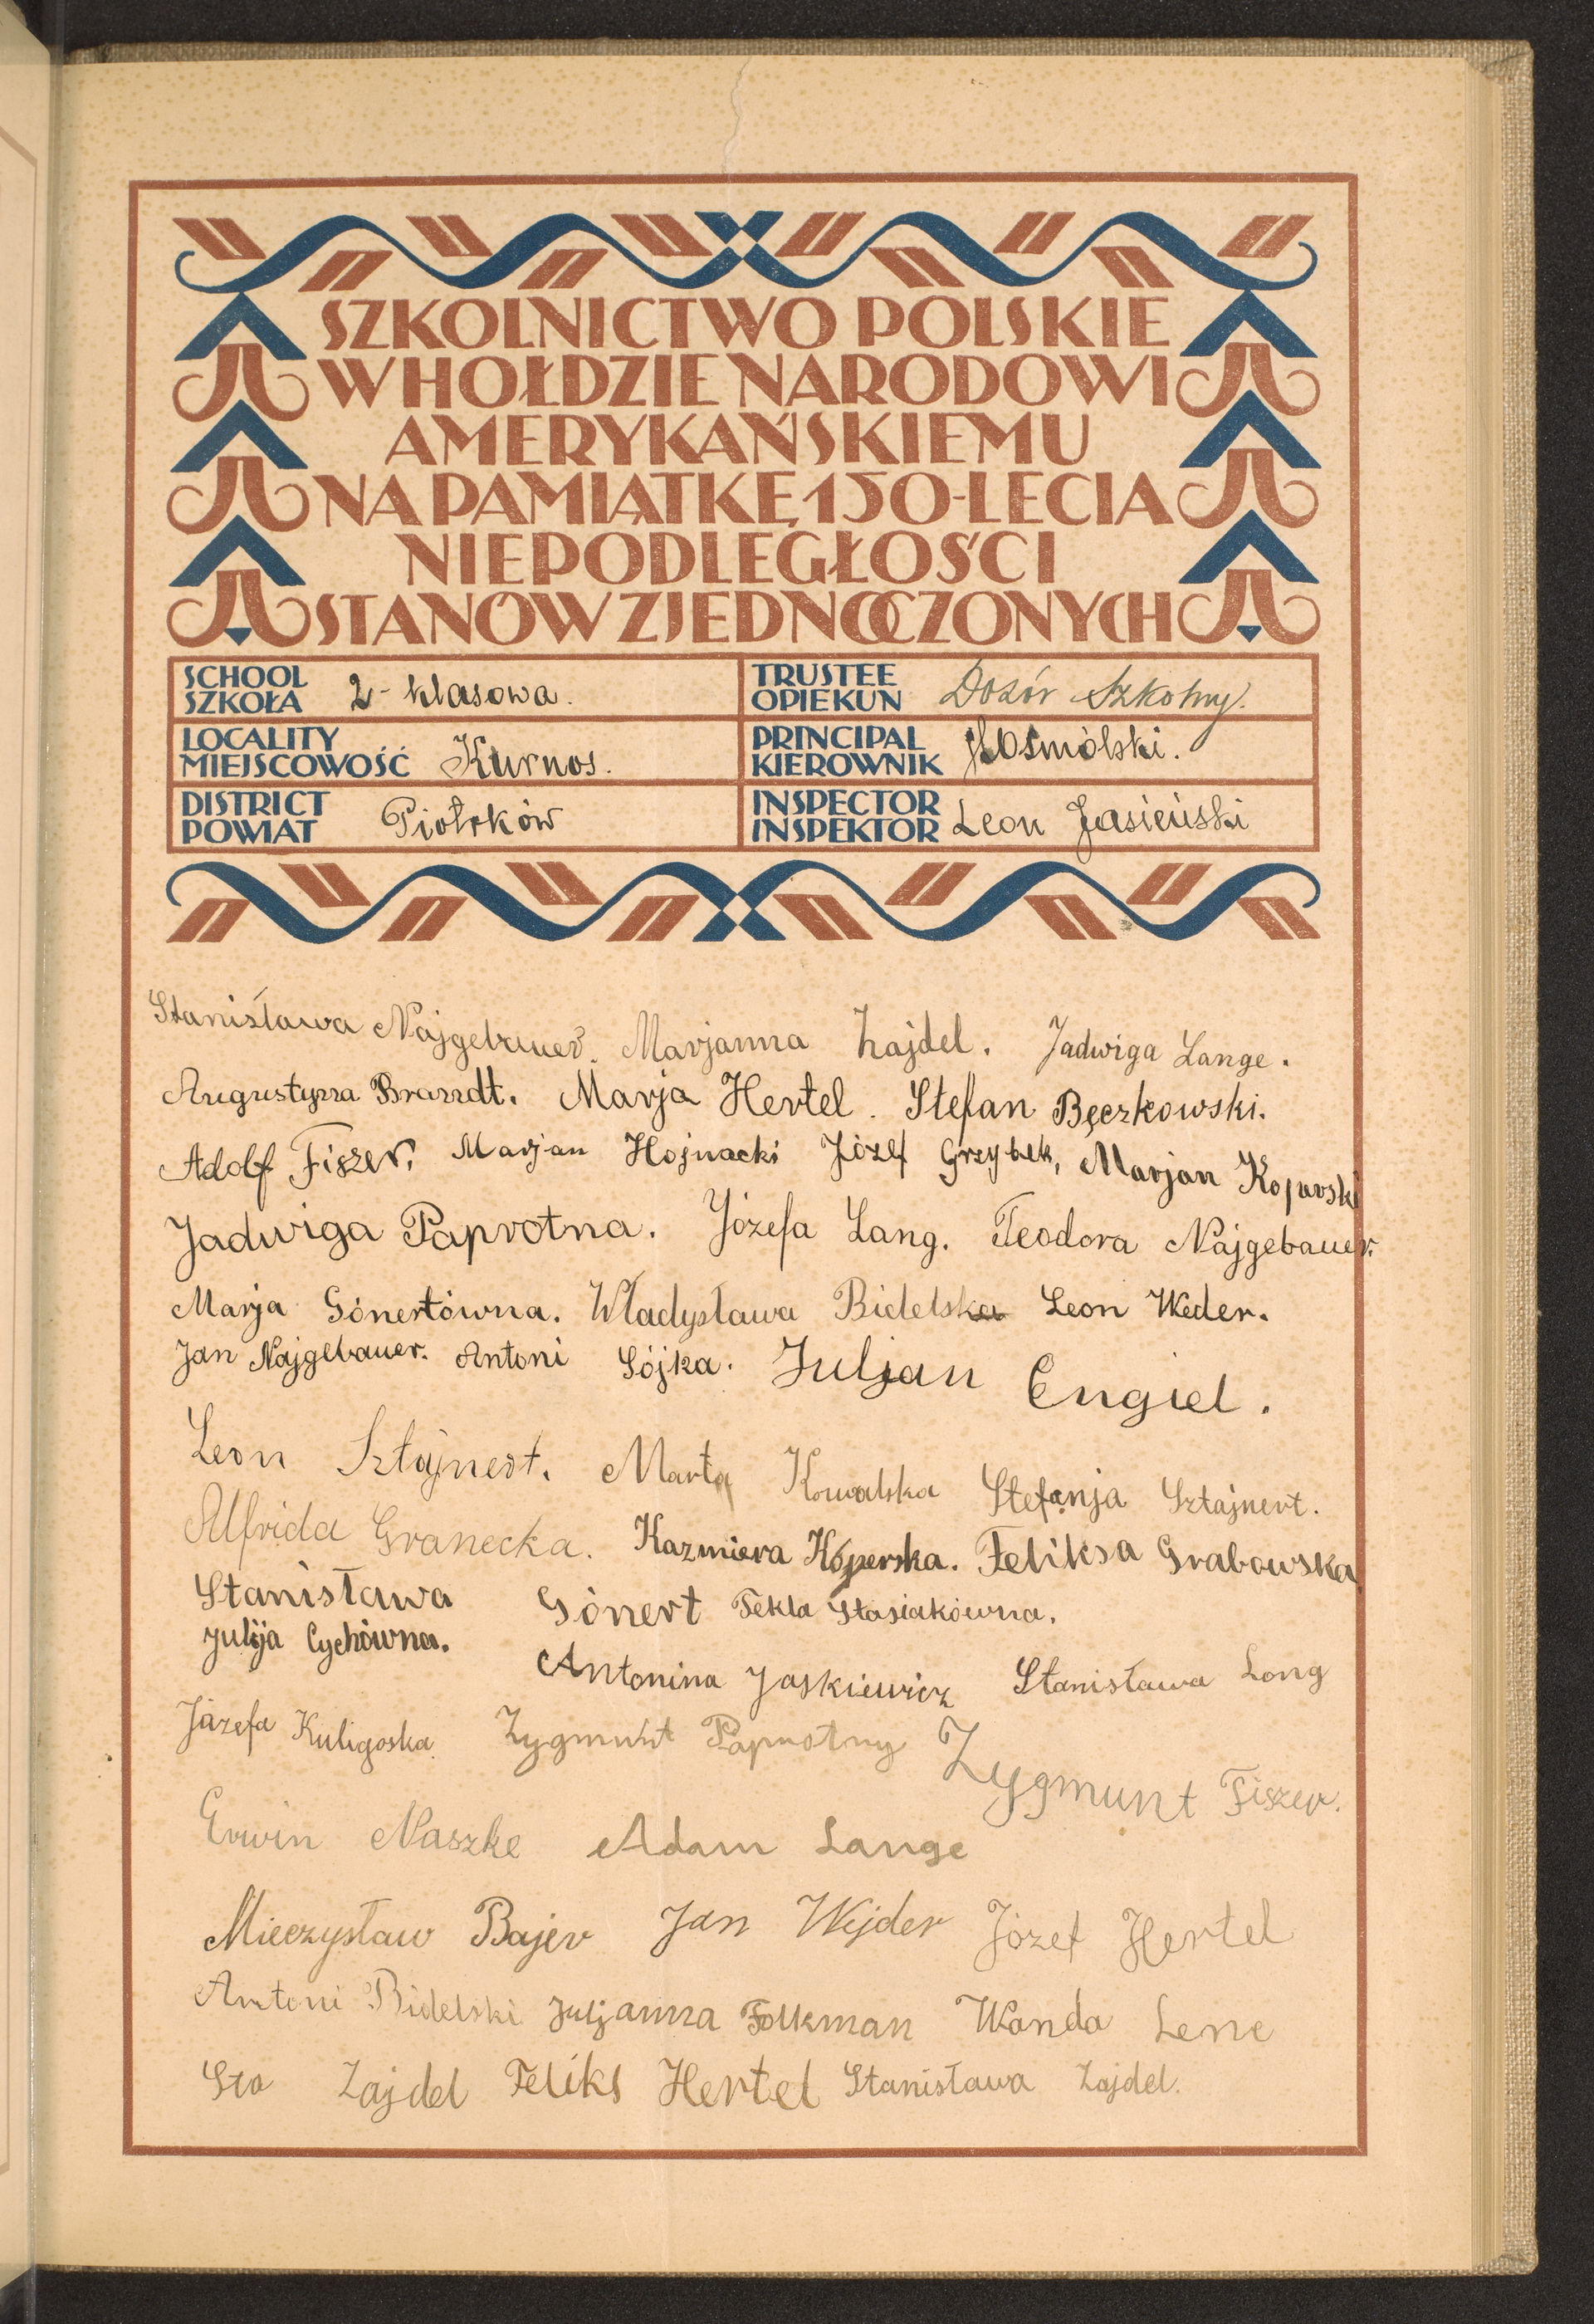 SZKOLNICTWO POLSKIE
W HOŁDZIE NARODOWI
AMERYKAŃSKIEMU
NA PAMIĄTKĘ 150-LECIA
NIEPODLEGŁOŚCI
STANÓW ZJEDNOCZONYCH
SCHOOL
SZKOŁA 2-klasowa.
TRUSTEE
OPIEKUN Dozór Szkolny.
LOCALITY
MIEJSCOWOŚĆ Kurnos.
PRINCIPAL
KIEROWNIK Osmólski.
DISTRICT
POWIAT Piotrków
INSPECTOR
INSPEKTOR Leon Jasieński
Stanisława Najgebauer. Marjanna Zajdel. Jadwiga Lange.
Augustyna Brandt. Marja Hertel. Stefan Bęczkowski.
Adolf Fiszer. Marjan Hojnacki Józef Grzybek, Marjan Koperski
Jadwiga Paprotna. Józefa Lang. Teodora Najgebauer.
Marja Gönertówna. Władysława Bidelska Leon Weder.
Jan Najgebauer. Antoni Sójka. Juljan Engiel.
Leon Sztajnert. Marta Kowalska Stefanja Sztajnert.
Alfrida Granecka. Kazmiera Koperska. Feliksa Grabowska
Stanisława Gönert Tekla Stasiakówna.
Julija Cychówna.
Antonina Jaskiewicz Stanisława Long
Józefa Kuligoska. Zygmunt Paprotny Zygmunt Fiszer.
Erwin Naszke Adam Lange
Mieczysław Bajer Jan Wejder Józef Hertel
Antoni Bidelski Juljanna Folkman Wanda Lene
Zajdel Feliks Hertel Stanisława Zajdel.